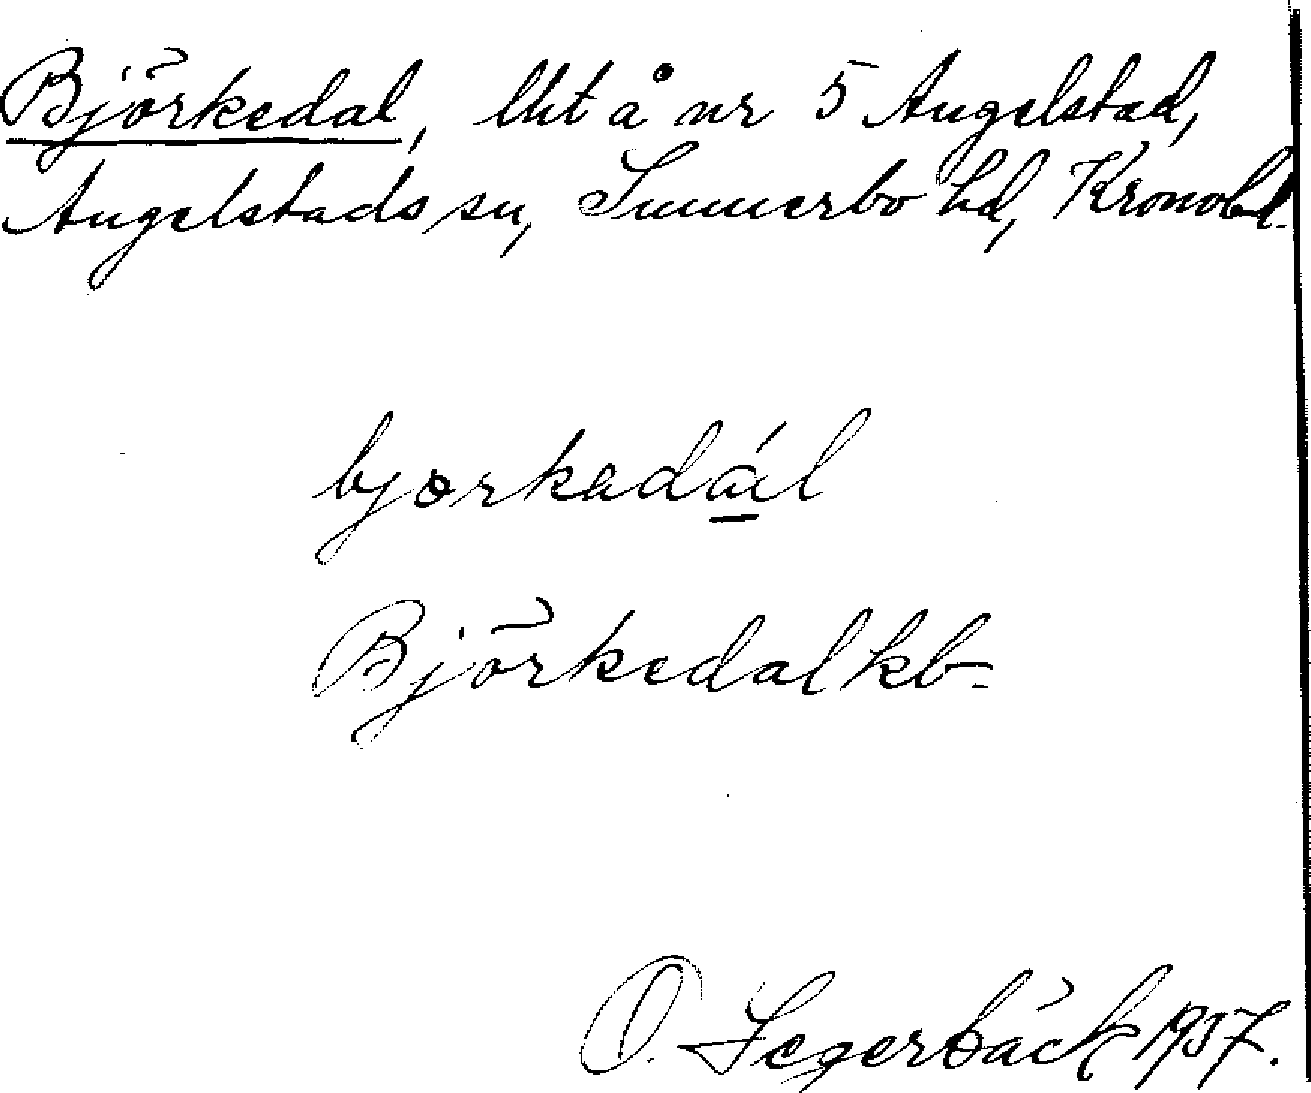 Björkedal, lht å nr 5 Angelstad,
Angelstads sn, Sunnerbo hd, Kronobl.
bjørkadál
Björkedal kb.
O. Segerbäck 1937.